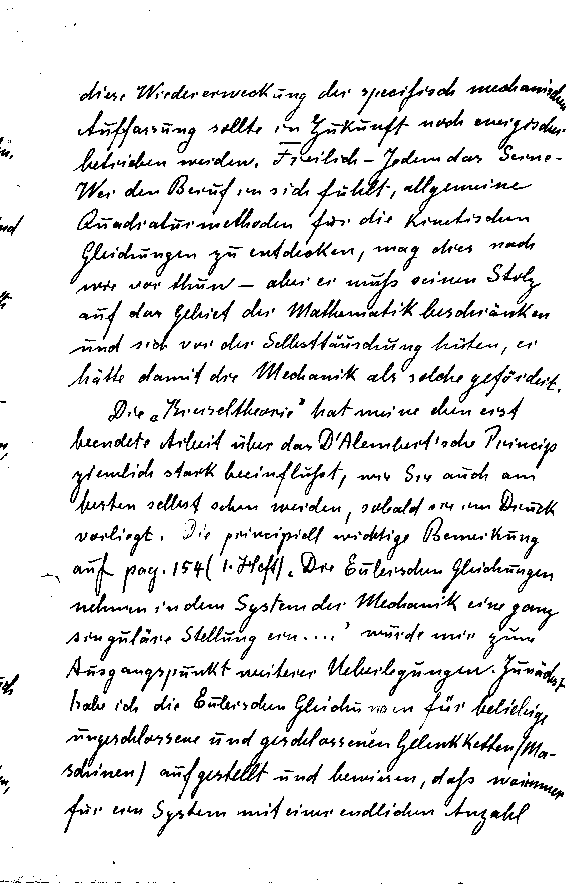 diese Wiedererweckung der specifisch mechanischen
Auffassung sollte in Zukunft noch energischer
betrieben werden. Freilich – Jedem das Seine –
Wer den Beruf in sich fühlt, allgemeine
Quadraturmethoden für die kinetischen
Gleichungen zu entdecken, mag dies nach
wie vor thun – aber er muß seinen Stolz
auf das Gebiet der Mathematik beschränken
und sich vor der Selbsttäuschung hüten, er
hätte damit die Mechanik als solche gefördert.
Die „Kreiseltheorie" hat meine eben erst
beendete Arbeit über das D'Alembert'sche Princip
ziemlich stark beeinflußt, wie Sie auch am
besten selbst sehen werden, sobald sie im Druck
vorliegt. Die principiell wichtige Bemerkung
auf pag. 154 (1. Heft). Die Eulerschen Gleichungen
nehmen in dem System der Mechanik eine ganz
singuläre Stellung ein....' wurde mir zum
Ausgangspunkt weiterer Ueberlegungen. Zunächst
habe ich die Eulerschen Gleichungen für beliebige
ungeschlossene und geschlossenen Gelenkketten (Ma-
schinen) aufgestellt und bewiesen, daß
für ein System mit einer endlichen Anzahl